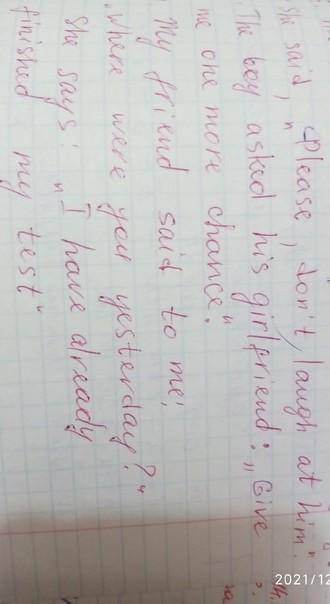 She said, "Please, don't, laugh at him."
The boy asked his girlfriend: „Give
me one more chance."
My friend said to me:
„Where were you yesterday?"
She says: „I have already
finished my test"
2021/12